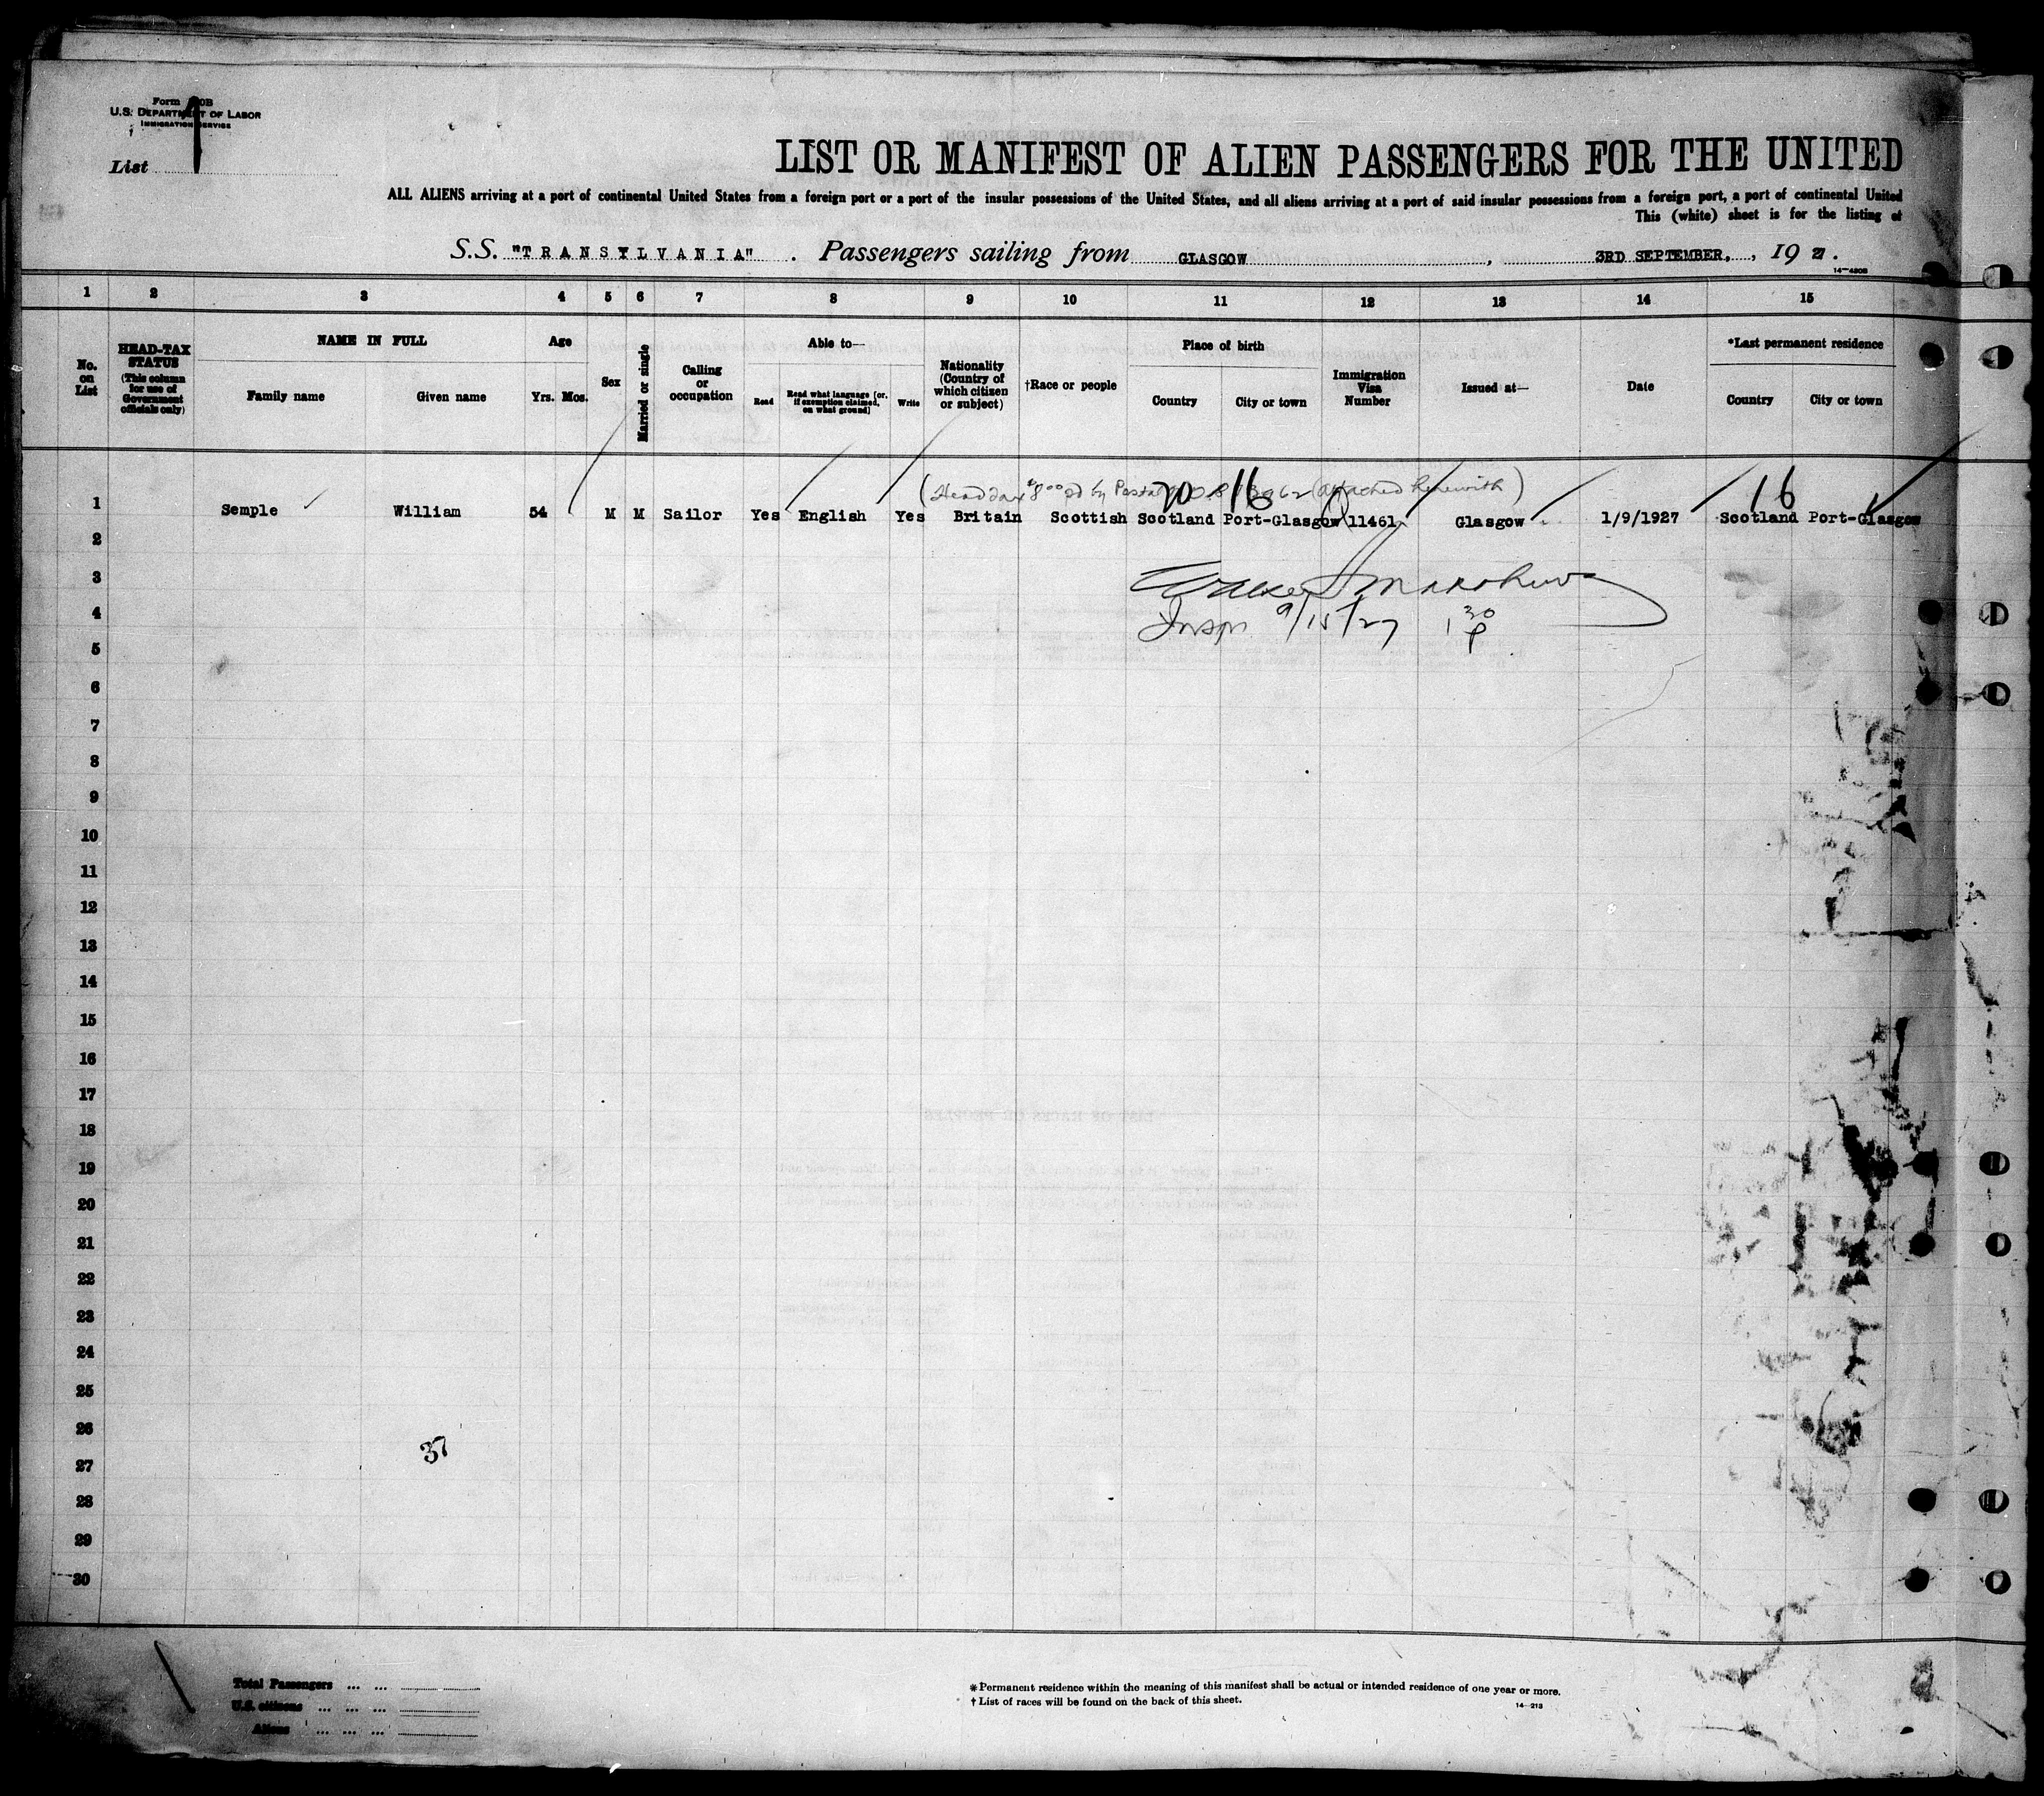 Form 500B
U.S. DEPARTMENT OF LABOR
IMMIGRATION SERVICE
List 1
LIST OR MANIFEST OF ALIEN PASSENGERS FOR THE UNITED
ALL ALIENS arriving at a port of continental United States from a foreign port or a port of the insular possessions of the United States, and all aliens arriving at a port of said insular possessions from a foreign port, a port of continental United
This (white) sheet is for the listing of
S.S. "TRANSYLVANIA" . Passengers sailing from GLASGOW , 3RD SEPTEMBER, , 1927.
14—4208
1 2 3 4 5 6 7 8 9 10 11 12 13 14 15
No. on List
HEAD-TAX STATUS (This column for use of Government officials only)
NAME IN FULL
Family name Given name
Age
Yrs. Mos.
Sex
Married or single
Calling or occupation
Able to—
Read Read what language [or, if exemption claimed, on what ground] Write
Nationality (Country of which citizen or subject)
†Race or people
Place of birth
Country City or town
Immigration Visa Number
Issued at—
Date
*Last permanent residence
Country City or town
(Head tax $8.00 pd by Postal (attached herewith)
20 16 16
1 Semple William 54 M M Sailor Yes English Yes Britain Scottish Scotland Port-Glasgow 11461 Glasgow 1/9/1927 Scotland Port-Glasgow
2
3
Insp. 9/15/27 1 30 P
4
5
6
7
8
9
10
11
12
13
14
15
16
17
18
19
20
21
22
23
24
25
26
37
27
28
29
30
Total Passengers ... ...
U.S. citizens ... ... ...
Aliens ... ... ...
* Permanent residence within the meaning of this manifest shall be actual or intended residence of one year or more.
† List of races will be found on the back of this sheet.
14—213